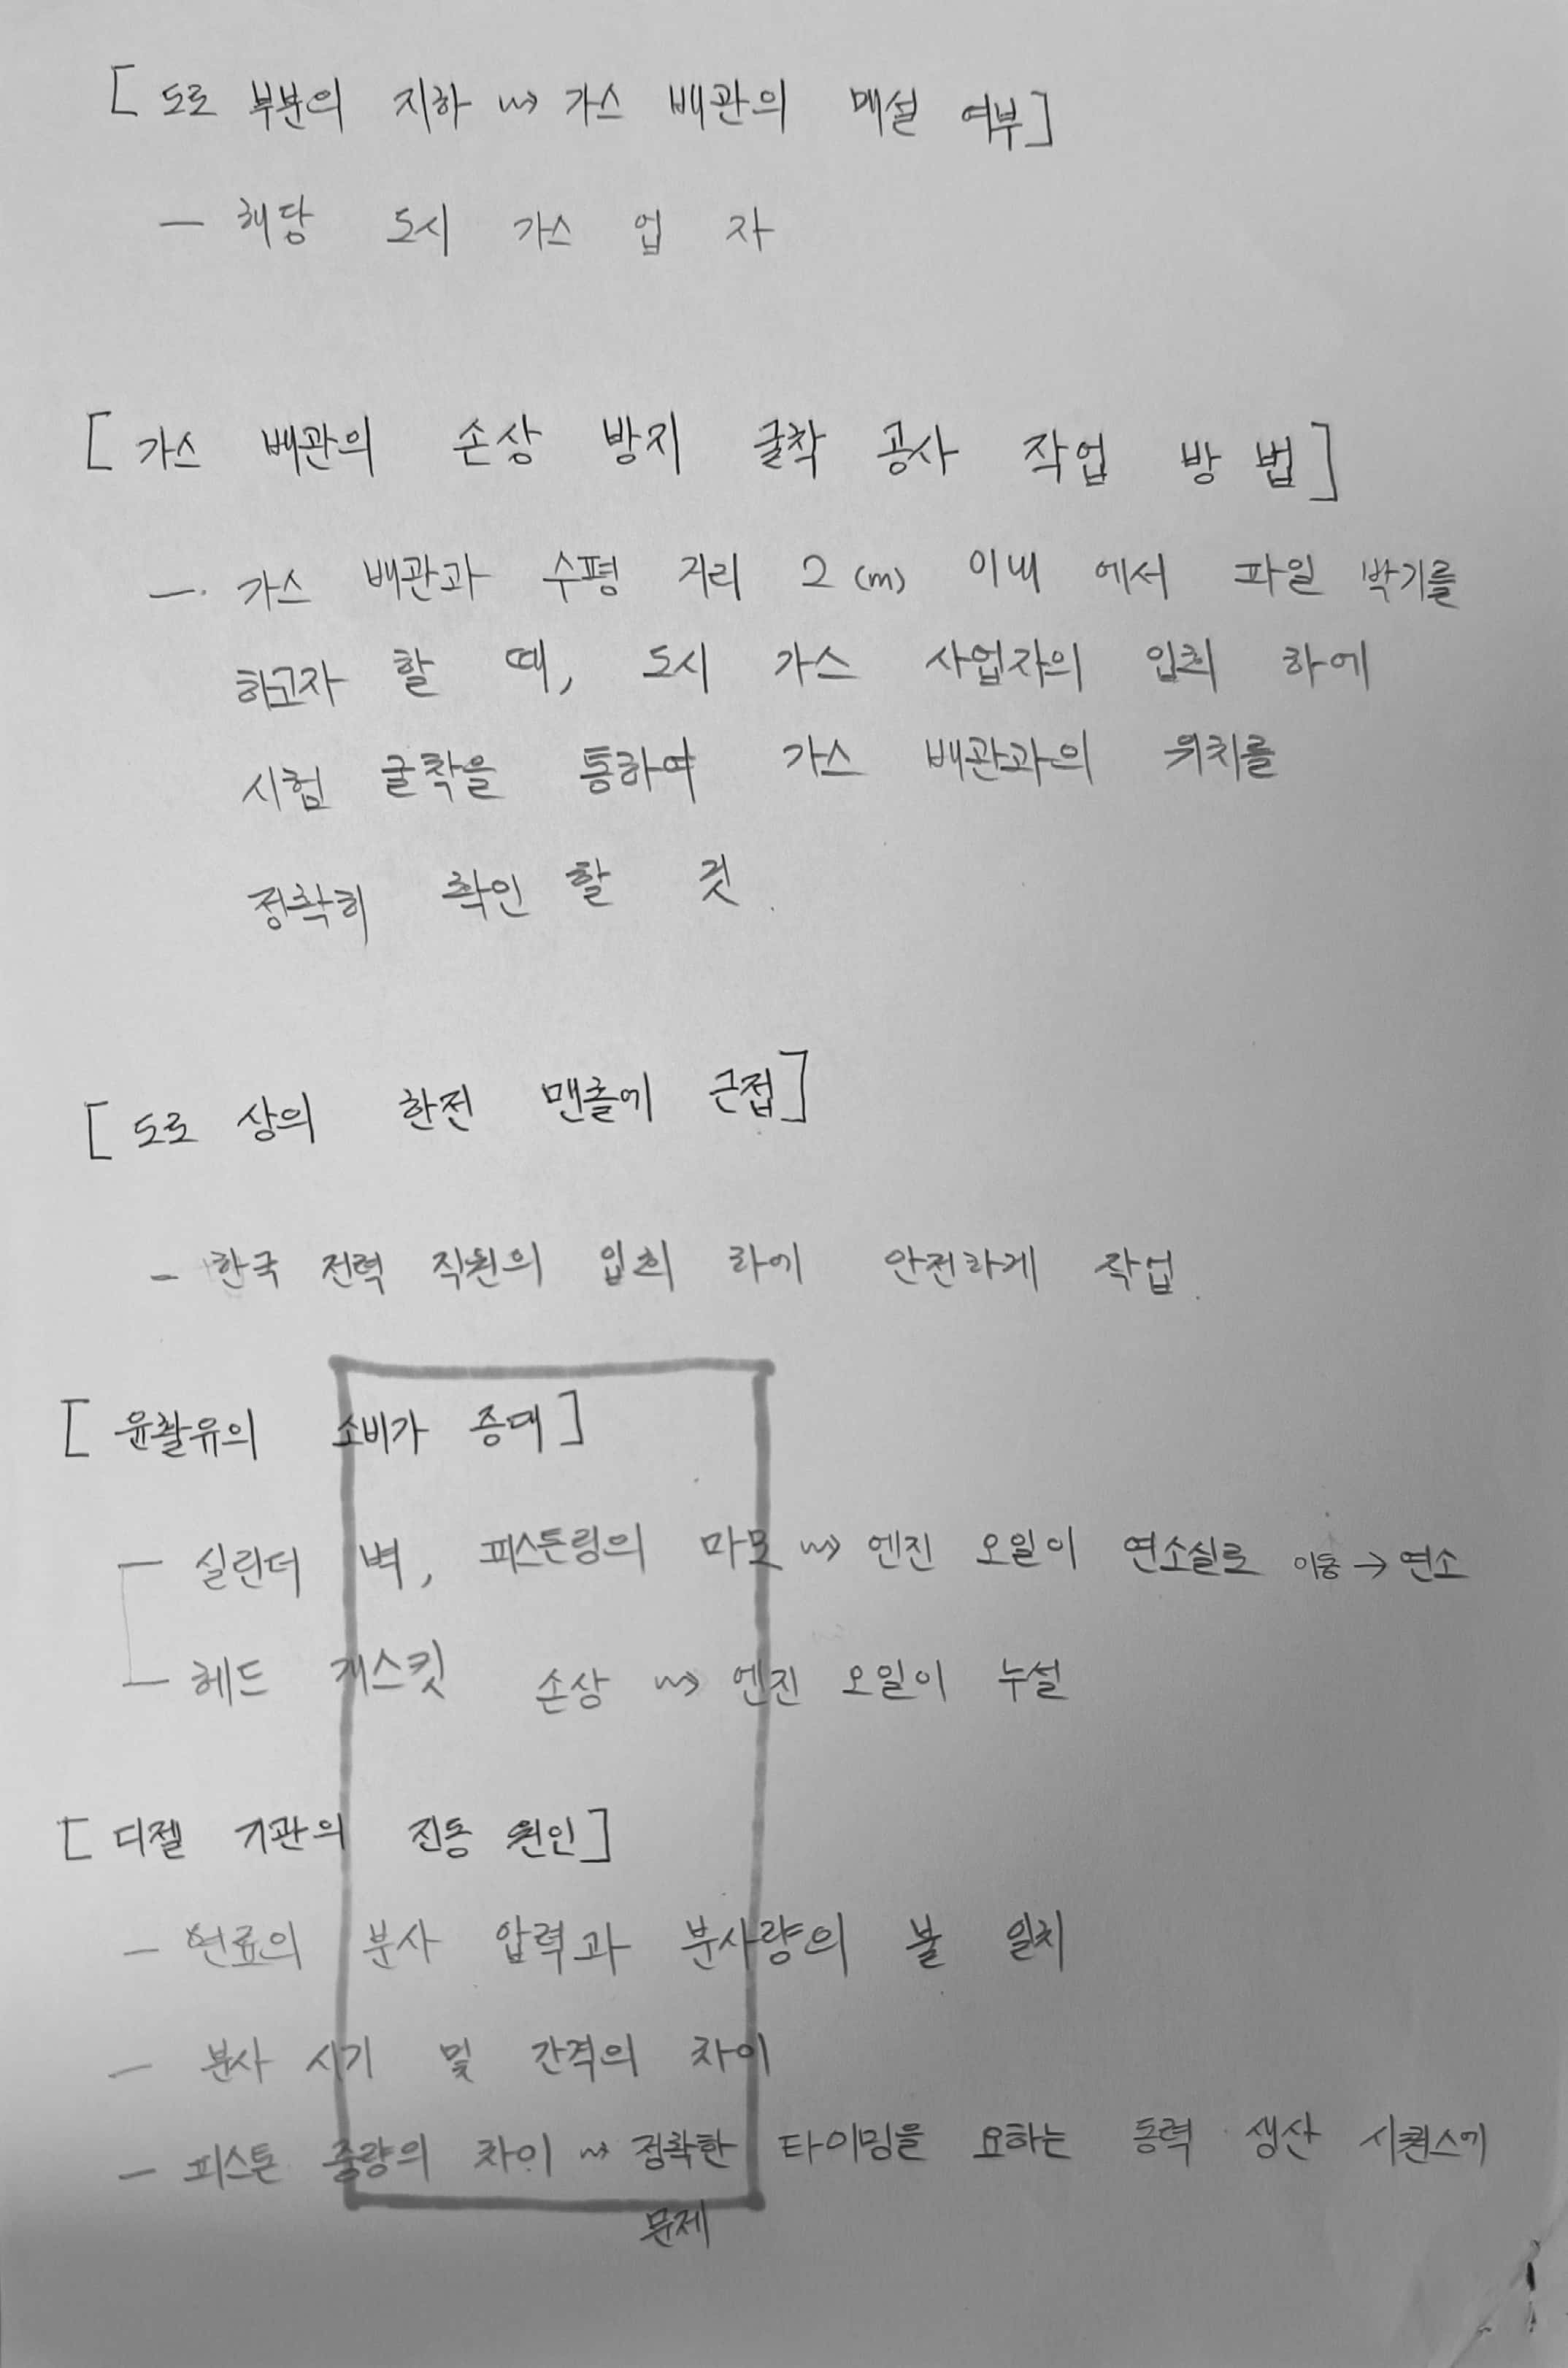 [ 도로 부분의 지하 ⇝ 가스 배관의 매설 여부 ]
- 해당 도시 가스 업 자
[ 가스 배관의 손상 방지 굴착 공사 작업 방 법 ]
- 가스 배관과 수평 거리 2 (m) 이내 에서 파일 박기를
하고자 할 때, 도시 가스 사업자의 입회 하에
시험 굴착을 통하여 가스 배관과의 위치를
정확히 확인 할 것.
[ 도로 상의 한전 맨홀에 근접 ]
- 한국 전력 직원의 입회 하에 안전하게 작업.
[ 윤활유의 소비가 증대 ]
- 실린더 벽, 피스톤링의 마모 ⇝ 엔진 오일이 연소실로 이동 → 연소
- 헤드 개스킷 손상 ⇝ 엔진 오일이 누설
[ 디젤 기관의 진동 원인 ]
- 연료의 분사 압력과 분사량의 불 일치
- 분사 시기 및 간격의 차이
- 피스톤 중량의 차이 ⇝ 정확한 타이밍을 요하는 동력 생산 시퀀스에
문제